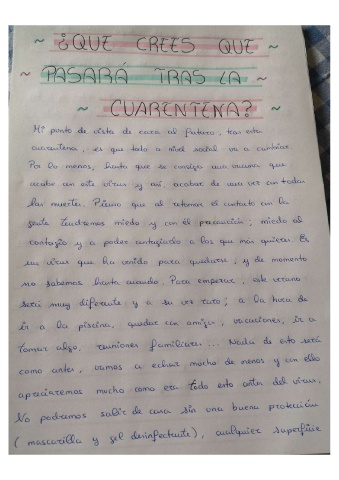 ~ ¿QUE CREES QUE ~
~ PASARÁ TRAS LA ~
~ CUARENTENA? ~
Mi punto de vista de cara al futuro, tras esta
cuarentena, es que todo a nivel social va a cambiar.
Por lo menos, hasta que se consiga una vacuna que
acabe con este virus y así, acabar de una vez con todas
las muertes. Pienso que al retomar el contacto con la
gente tendremos miedo y con él precaución; miedo al
contagio y a poder contagiarlo a los que más quieres. Es
un virus que ha venido para quedarse, y de momento
no sabemos hasta cuando. Para empezar, este verano
será muy diferente y a su vez raro; a la hora de
ir a la piscina, quedar con amigos, vacaciones, ir a
tomar algo, reuniones familiares... Nada de esto será
como antes, vamos a echar mucho de menos y con ello
apreciaremos mucho como era todo esto antes del virus.
No podremos salir de casa sin una buena protección
(mascarilla y gel desinfectante), cualquier superficie